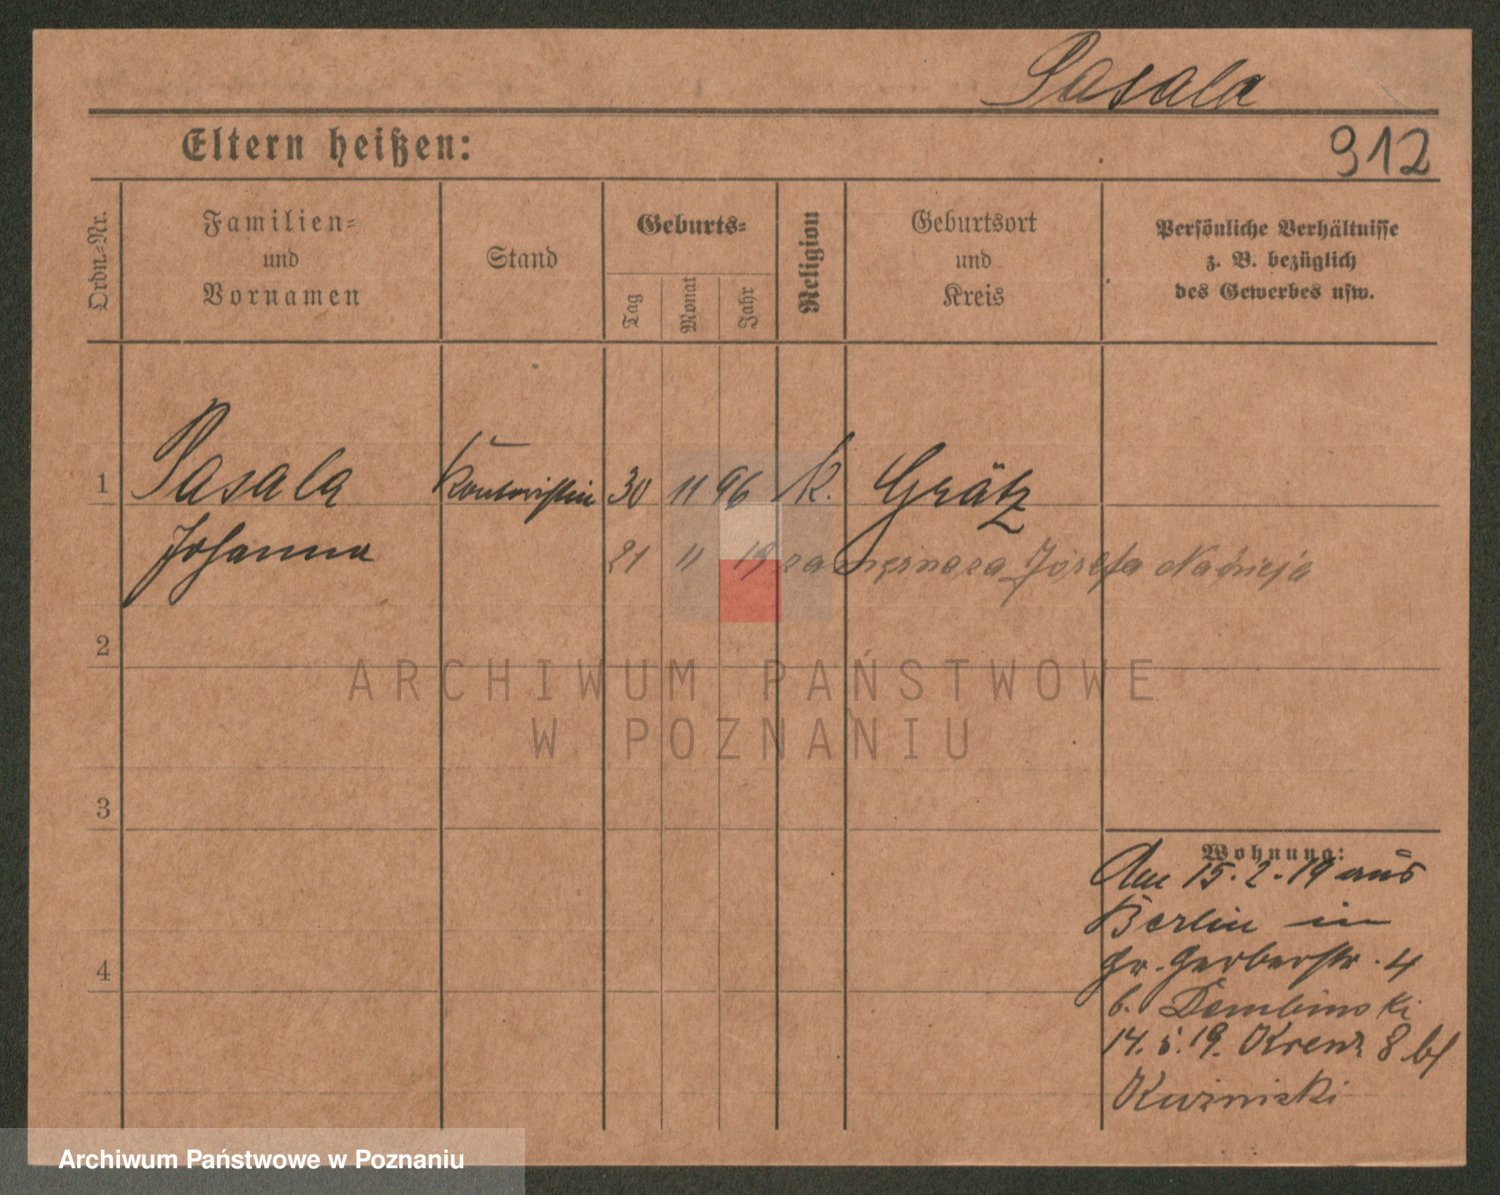 Pasala
Eltern heißen:
912
Ordn.-Nr.
Familien-
und
Vornamen
Stand
Geburts-
Tag
Monat
Jahr
Religion
Geburtsort
und
Kreis
Persönliche Verhältnisse
z. B. bezüglich
des Gewerbes usw.
1 Pasala Kontoristin 30 11 96 k. Grätz
Johanna 21 11 19 Józefa
2
ARCHIWUM PAŃSTWOWE
W POZNANIU
3
Wohnung:
Am 15.2.19 aus
Berlin in
Gr. Gerberstr. 4
b. Dembinski
14. 5. 19. 8 bl
4
Archiwum Państwowe w Poznaniu